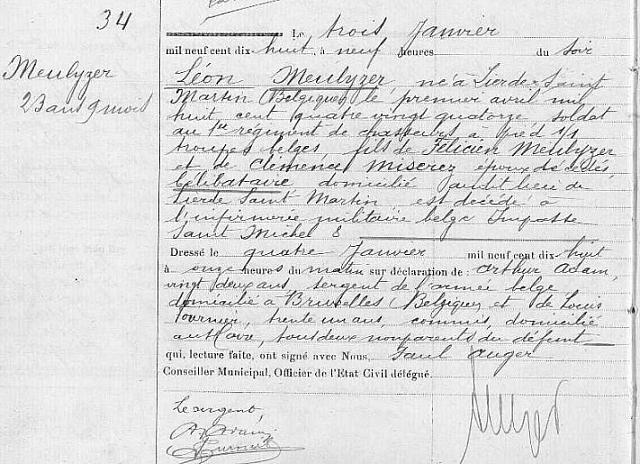 34
Meulyzer
23 ans 9 mois
Le trois Janvier
mil neuf cent dix-huit, à neuf heures du soir
Léon Meulyzer, né à Lierde-Saint
Martin (Belgique) le premier avril mil
huit cent quatre vingt quatorze soldat
au 1er régiment de chasseurs à pied 1/1
troupes belges fils de Félicien Meulyzer
et de Clémence Miserez époux décédés
célibataire domicilié audit lieu de
Lierde Saint Martin est décédé à
l'infirmerie militaire belge Impasse
Saint Michel 8
Dressé le quatre Janvier mil neuf cent dix-huit
à onze heures du matin sur déclaration de : Arthur Adam,
vingt deux ans, sergent de l'armée belge
domicilié à Bruxelles (Belgique) et de Louis
Fournier, trente un ans, commis, domicilié
au Havre, tous deux non parents du défunt
qui, lecture faite, ont signé avec Nous, Paul Auger
Conseiller Municipal, Officier de l'Etat Civil délégué.
Le sergent,